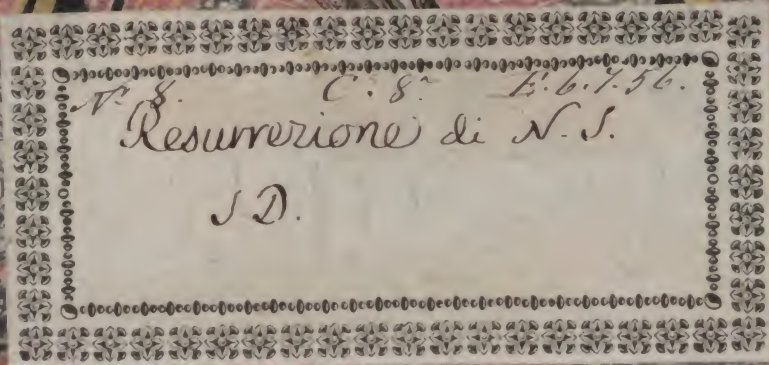 N.º 8. C. 8.ª E.6.7.56.
Resurrezione di N. S.
S D.